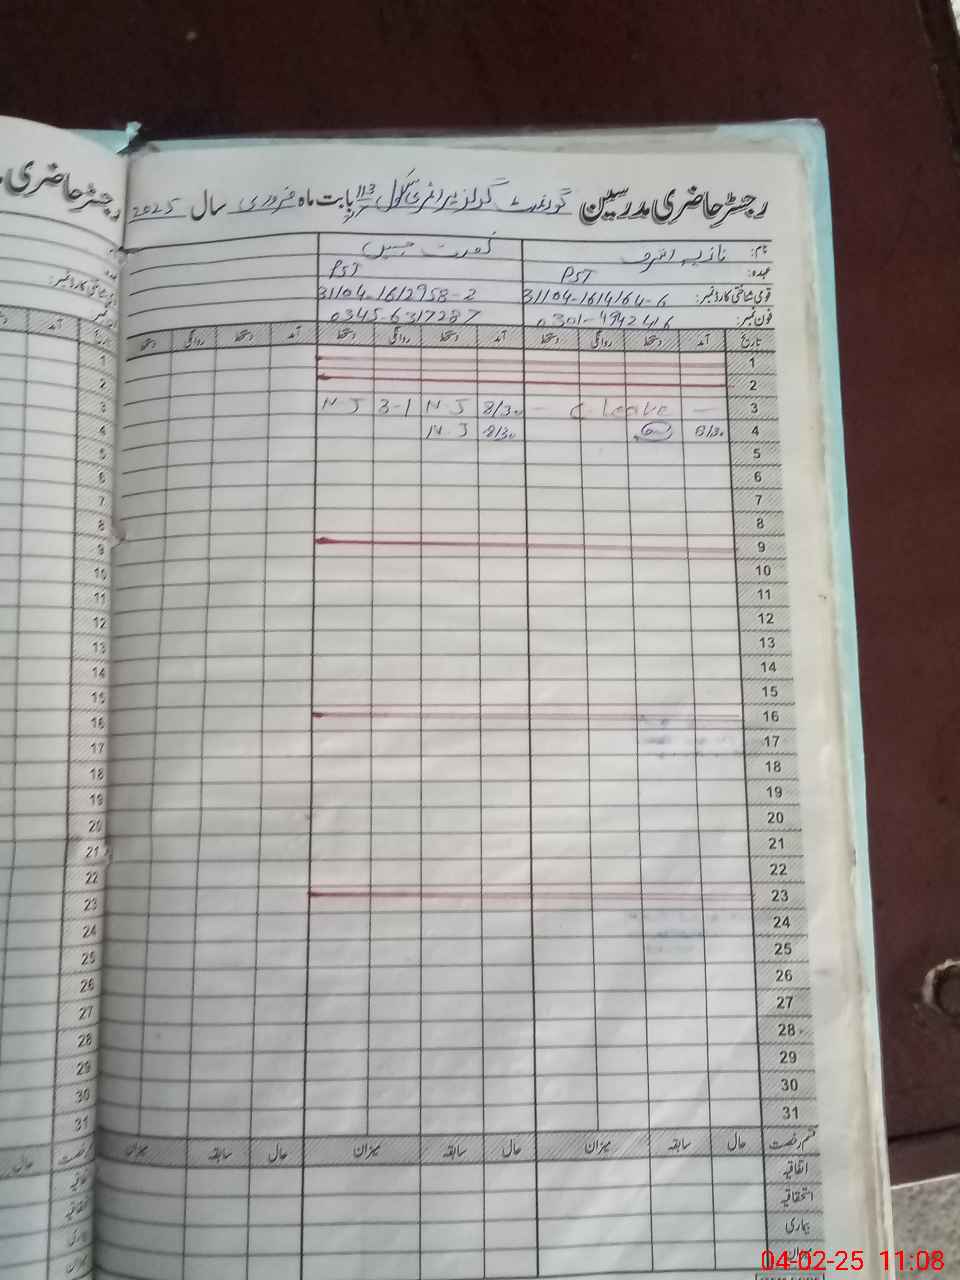 رجسٹر حاضری مدرسین گورنمنٹ گرلز پرائمری سکول 113 بابت ماہ فروری سال 2025
نام: نازیہ اشرف
عہدہ: PST PST
قومی شناختی کارڈ نمبر: 31104-1614164-6 31104-1612958-2
فون نمبر: 0301-4942416 0345-6317287
تاریخ آمد دستخط روانگی دستخط آمد دستخط روانگی دستخط آمد دستخط روانگی دستخط
1
2
3 — C leave — 8/30 N.J 3-1 N.J
4 8/30 8/30 N.J
5
6
7
8
9
10
11
12
13
14
15
16
17
18
19
20
21
22
23
24
25
26
27
28
29
30
31
قسم رخصت حال سابقہ میزان حال سابقہ میزان حال سابقہ میزان
اتفاقیہ
استحقاقیہ
بیماری
04-02-25 11:08